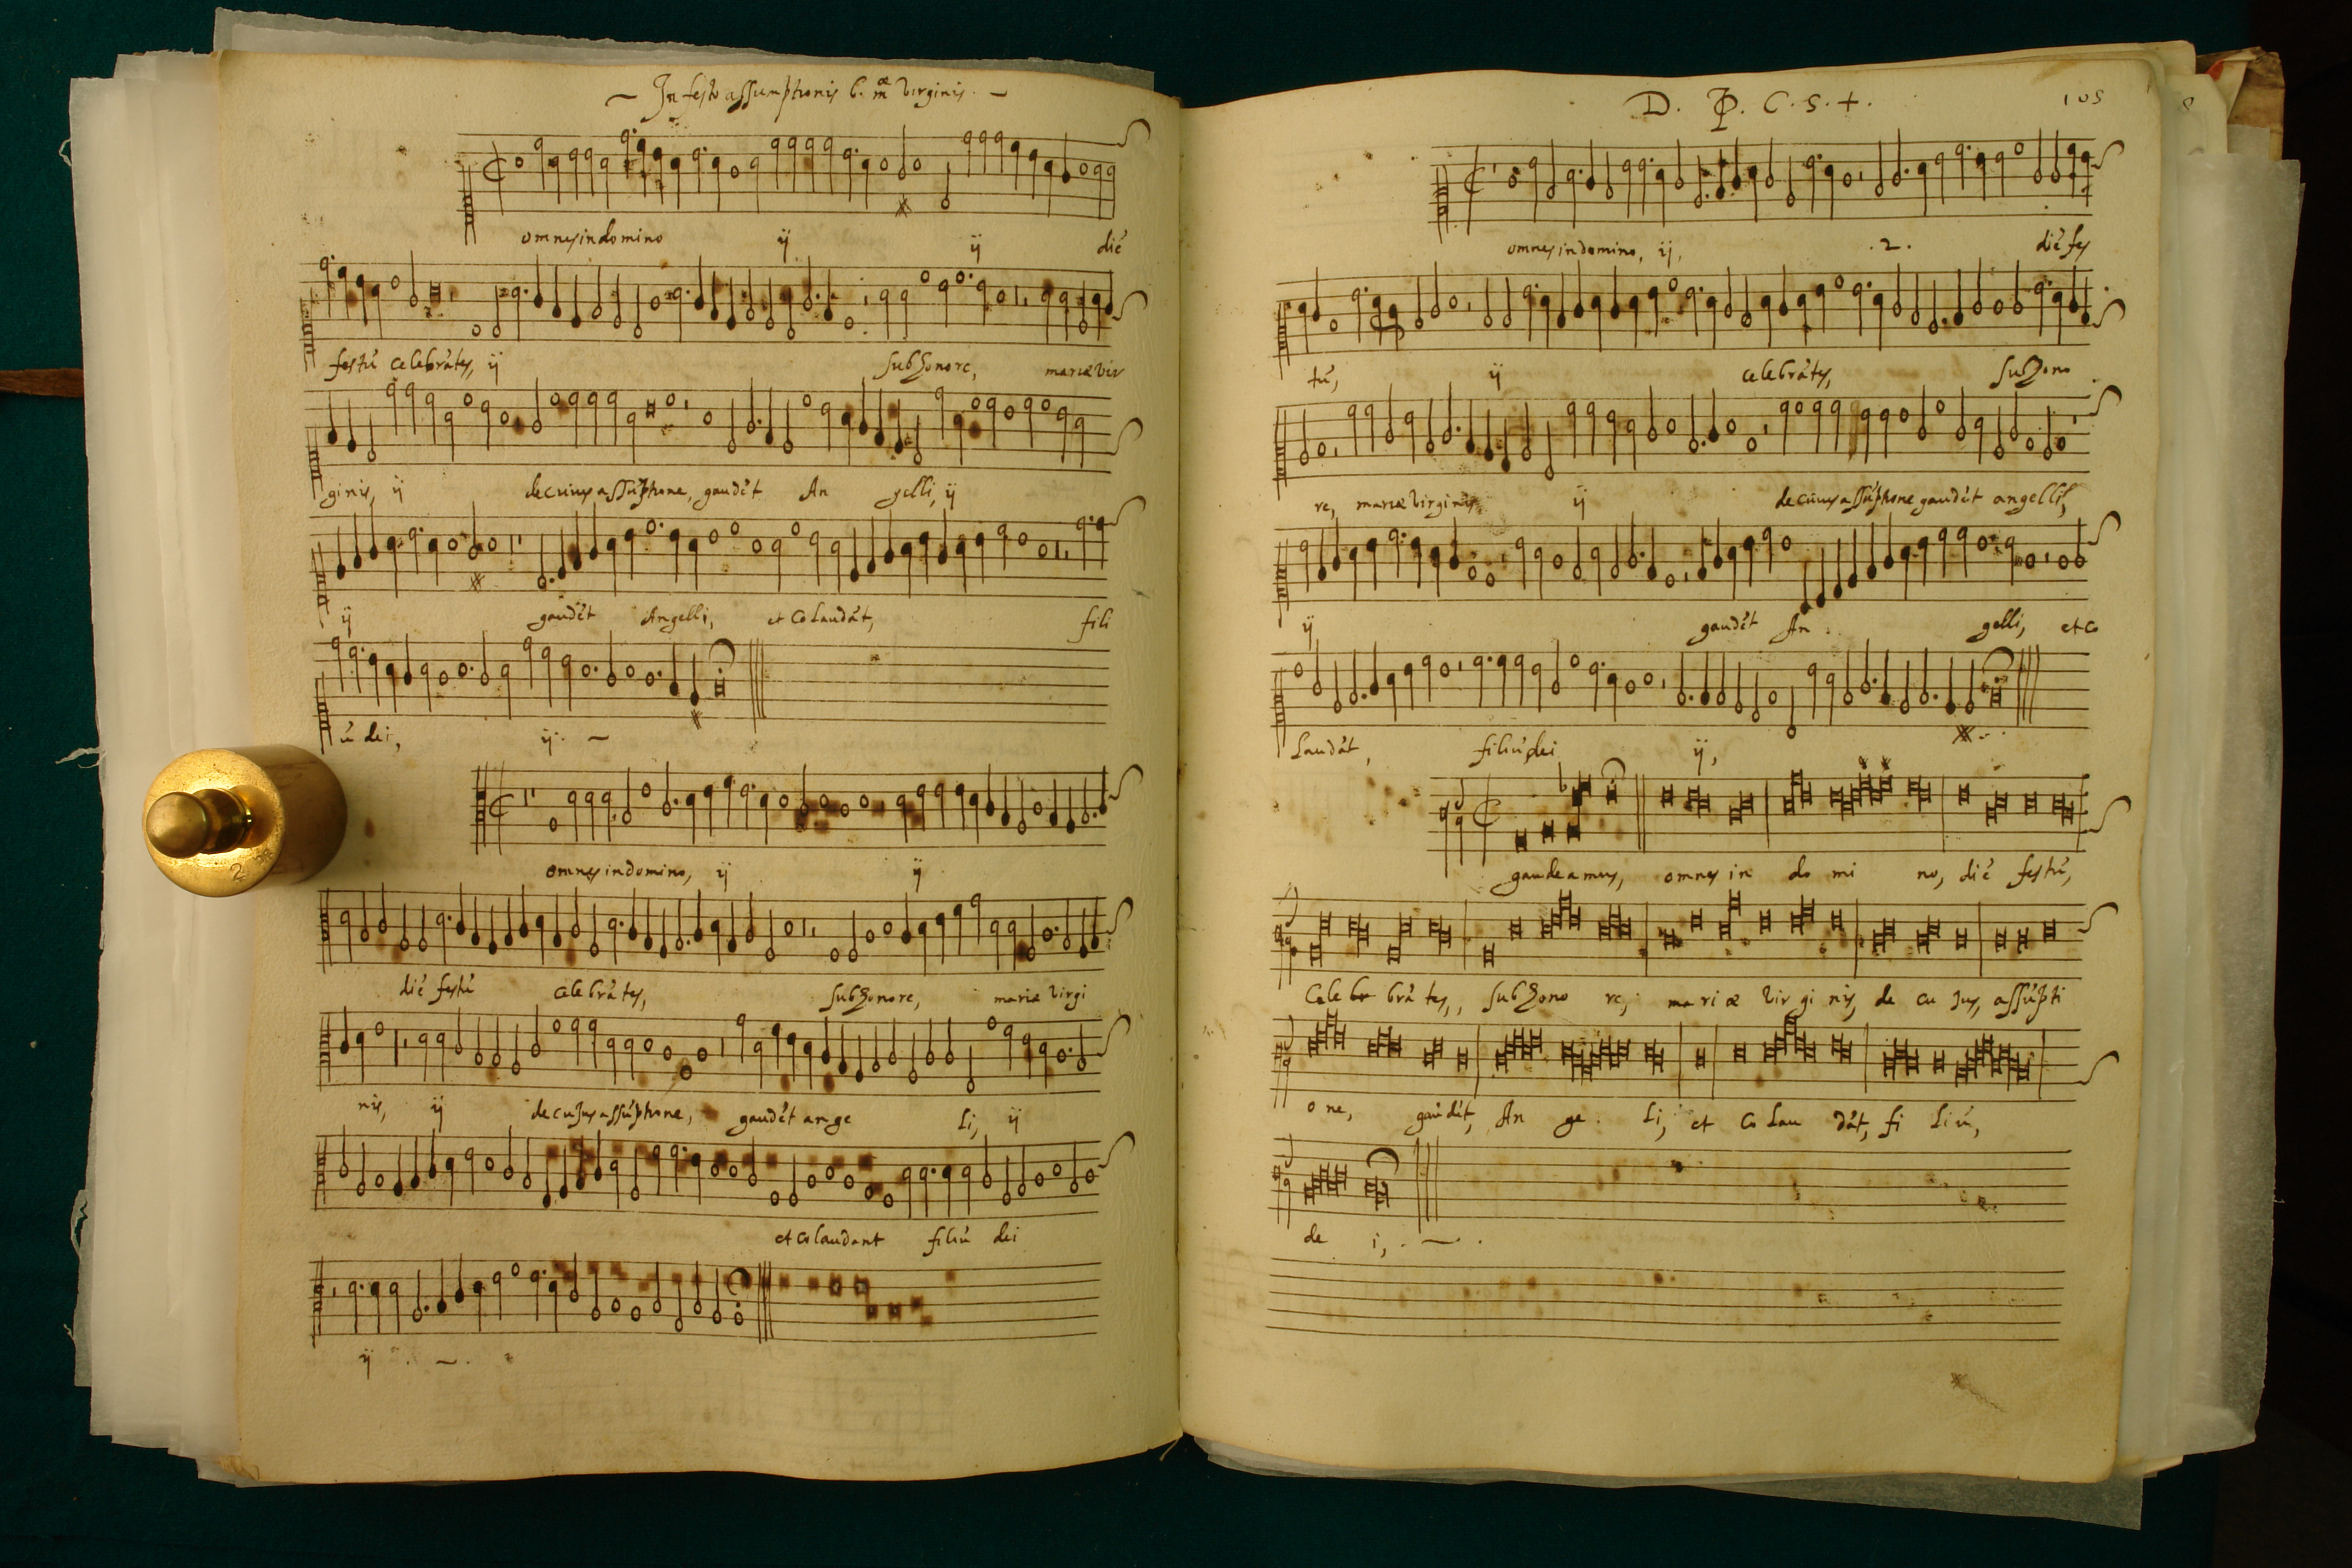 In festo assumptionis b. mæ virginis.
omnes in domino ij ij dié
festú celebrátes, ij sub honore, mariæ vir
ginis, ij de cuius assúptione, gaudét An gelli, ij
ij gaudét Angelli, et colaudát, fili
ú dei, ij.
omnes in domino, ij ij
dié festú celebrátes, sub honore, mariæ virgi
nis, ij de cujus assúptione, gaudét ange li, ij
et colaudant filiú dei
ij.
D. P. C. S. +.
105
omnes in domino, ij, .2. dié fes
tú, ij celebrátes, sub hono
re, mariæ virginis, ij de cuius assúptione gaudét angellis,
ij gaudét An gelli, et co
laudát, filiú dei ij,
gaudeamus, omnes in do mi no, dié festú,
Cele br brá tes, sub hono re, ma ri æ vir gi nis, de cu jus, assúpti
o ne, gaudét, An ge li, et co lau dát, fi li ú,
de i,